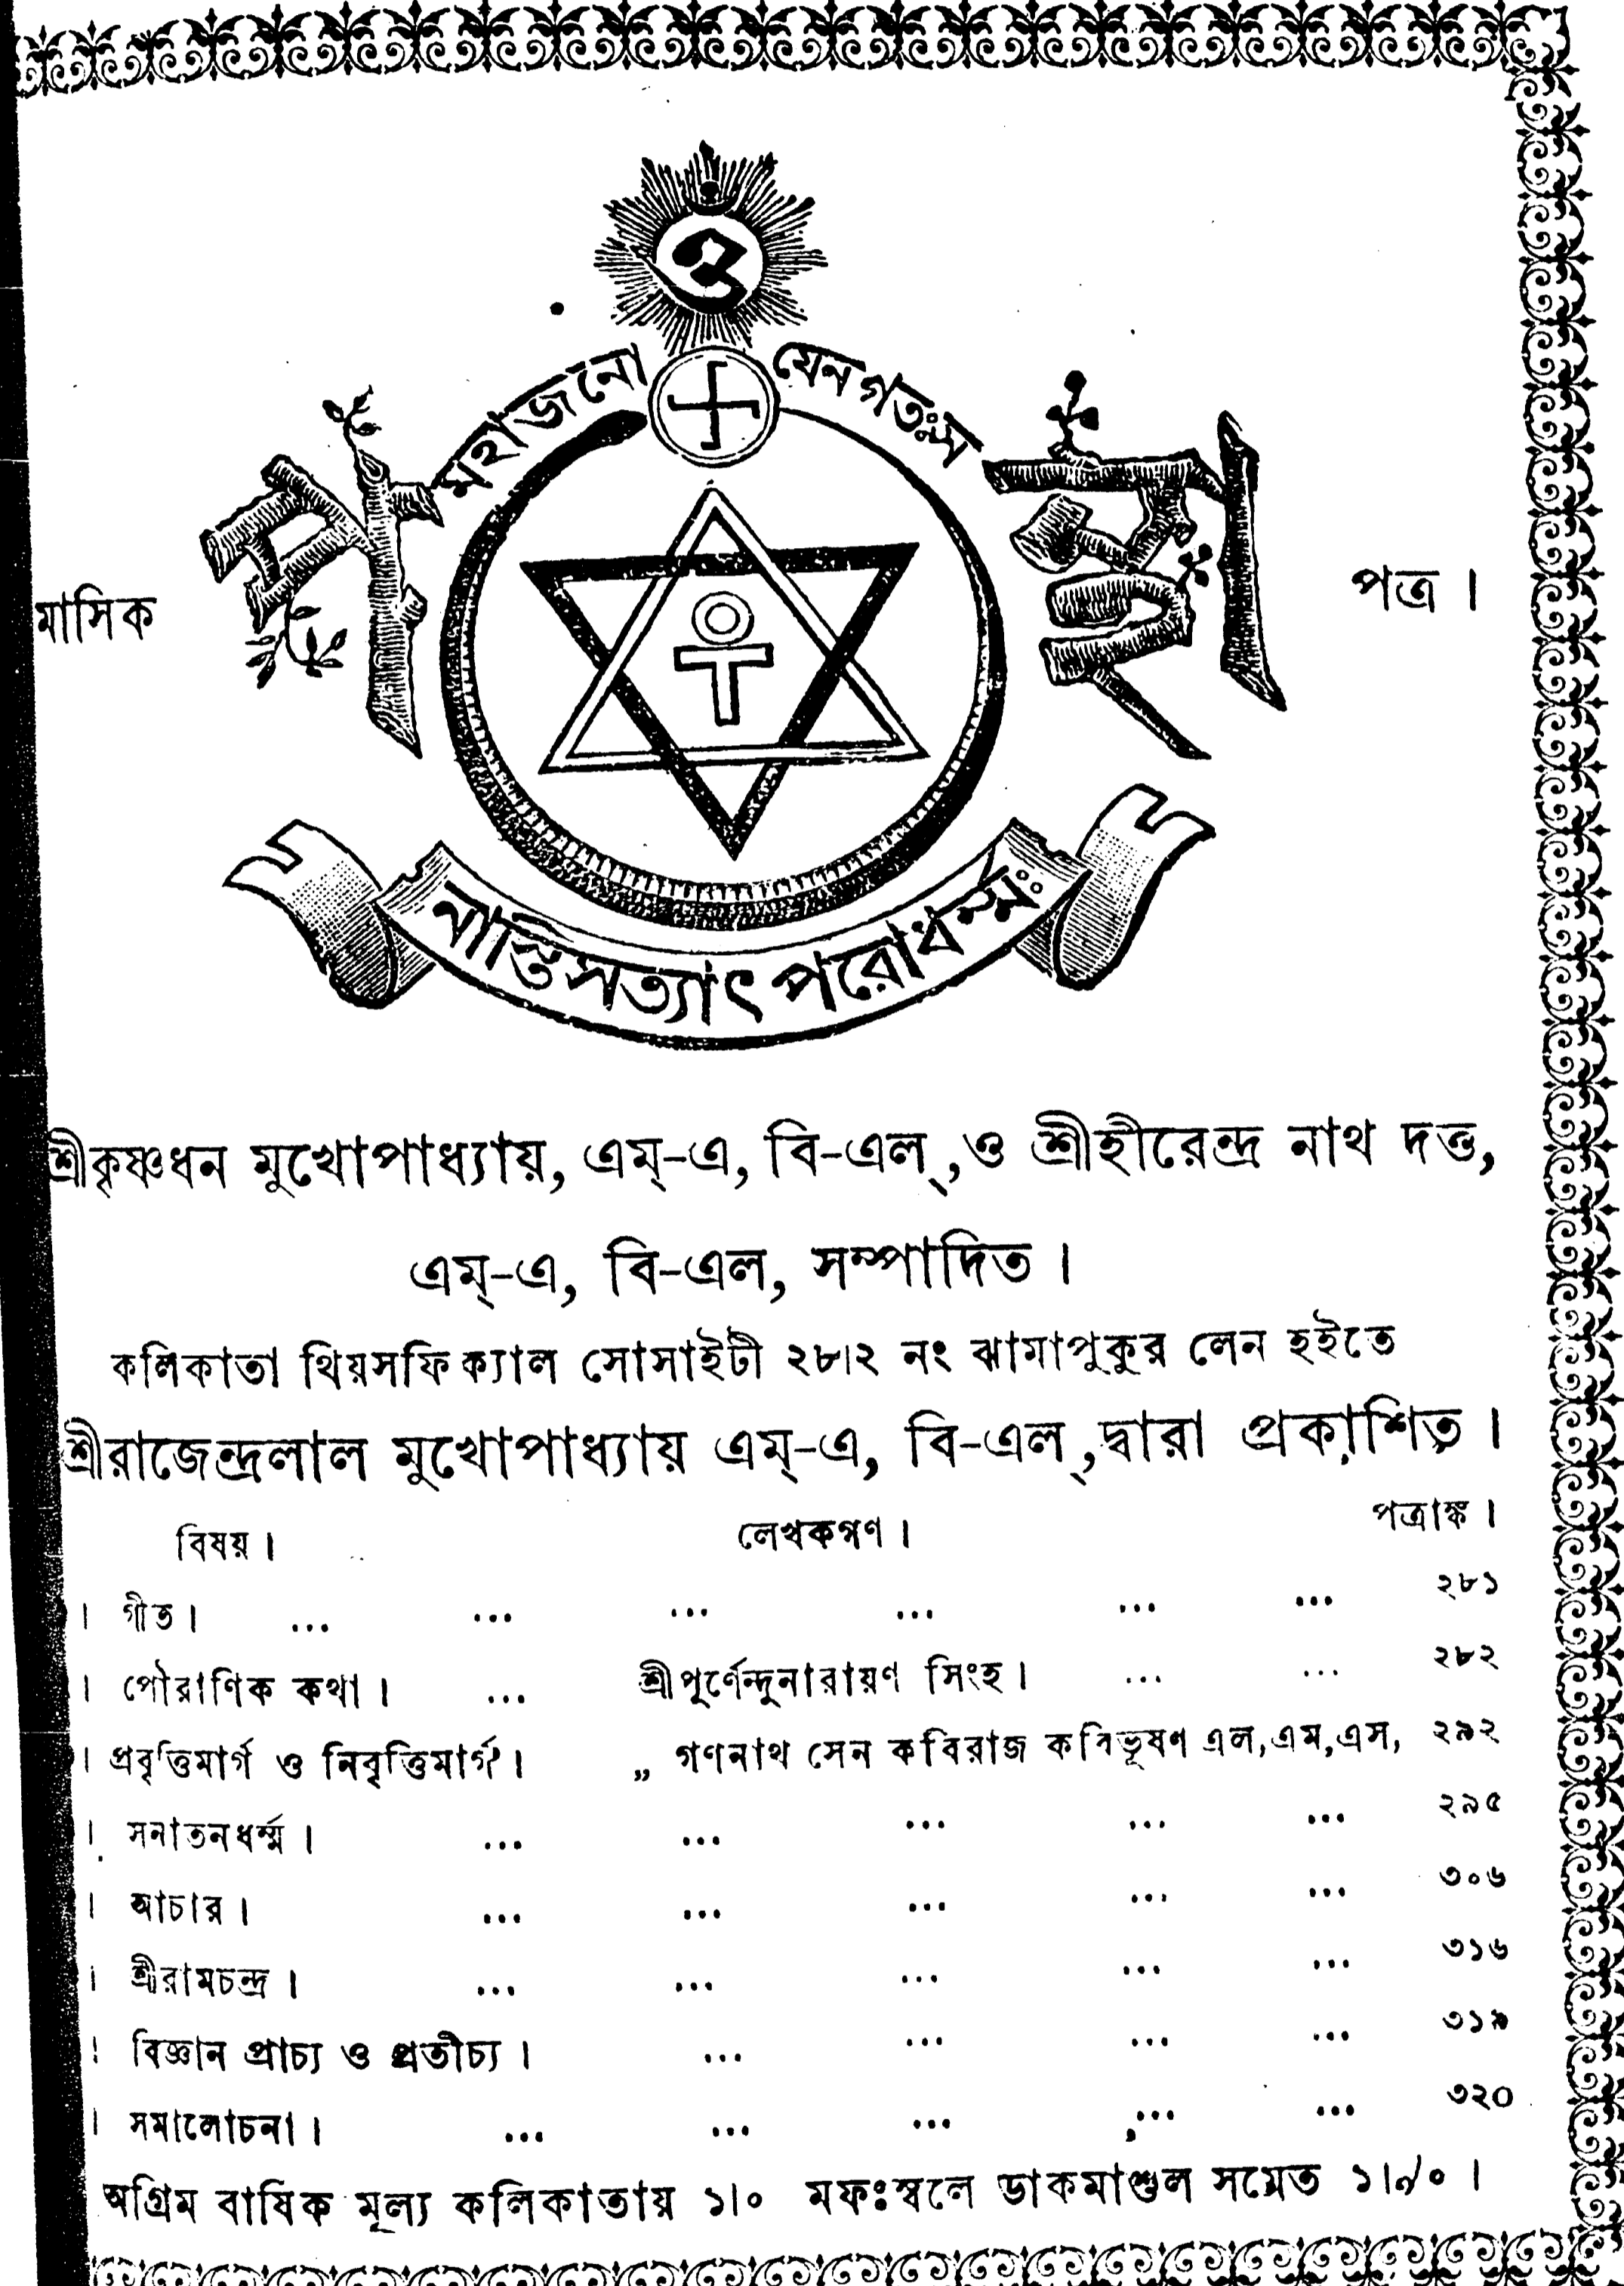 ওঁ
মহাজনো যেন গতঃ স
মাসিক পন্থা পত্র ।
নাস্তি সত্যাৎ পরোধর্ম্মঃ
শ্রীকৃষ্ণধন মুখোপাধ্যায়, এম্-এ, বি-এল্, ও শ্রীহীরেন্দ্র নাথ দত্ত,
এম্-এ, বি-এল, সম্পাদিত ।
কলিকাতা থিয়সফিক্যাল সোসাইটী ২৮।২ নং ঝামাপুকুর লেন হইতে
শ্রীরাজেন্দ্রলাল মুখোপাধ্যায় এম্-এ, বি-এল্, দ্বারা প্রকাশিত ।
বিষয় । লেখকগণ । পত্রাঙ্ক ।
। গীত । ... ... ... ... ... ... ২৮১
। পৌরাণিক কথা । ... শ্রীপূর্ণেন্দুনারায়ণ সিংহ । ... ... ২৮২
। প্রবৃত্তিমার্গ ও নিবৃত্তিমার্গ । „ গণনাথ সেন কবিরাজ কবিভূষণ এল,এম,এস, ২৯২
। সনাতনধর্ম্ম । ... ... ... ... ... ২৯৫
। আচার । ... ... ... ... ... ৩০৬
। শ্রীরামচন্দ্র । ... ... ... ... ... ৩১৬
। বিজ্ঞান প্রাচ্য ও প্রতীচ্য । ... ... ... ... ৩১৯
। সমালোচনা । ... ... ... ... ... ৩২০
অগ্রিম বার্ষিক মূল্য কলিকাতায় ১।০ মফঃস্বলে ডাকমাশুল সমেত ১।৵০ ।